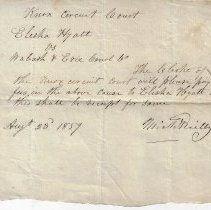 Knox Circuit Court
Elisha Hyatt
vs
Wabash & Erie Canal Co
The Clerk of
the Knox circuit court will please pay
fees, in the above cause to Elisha Hyatt
this shall be receipt for same
Augt 23d 1859
Reilly